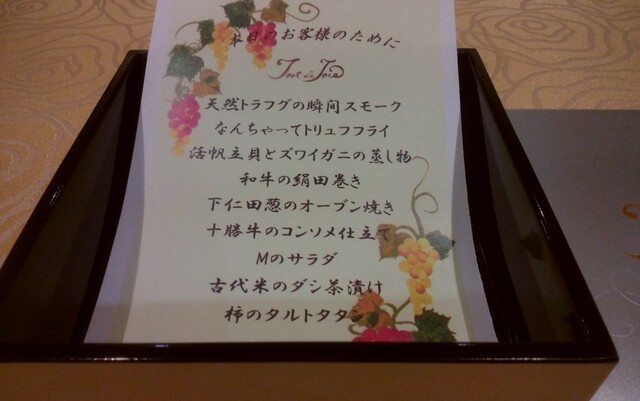 本日のお客様のために
天然トラフグの瞬間スモーク
なんちゃってトリュフフライ
活帆立貝とズワイガニの蒸し物
和牛の絹田巻き
下仁田葱のオーブン焼き
十勝牛のコンソメ仕立て
Mのサラダ
古代米のダシ茶漬け
柿のタルトタタン